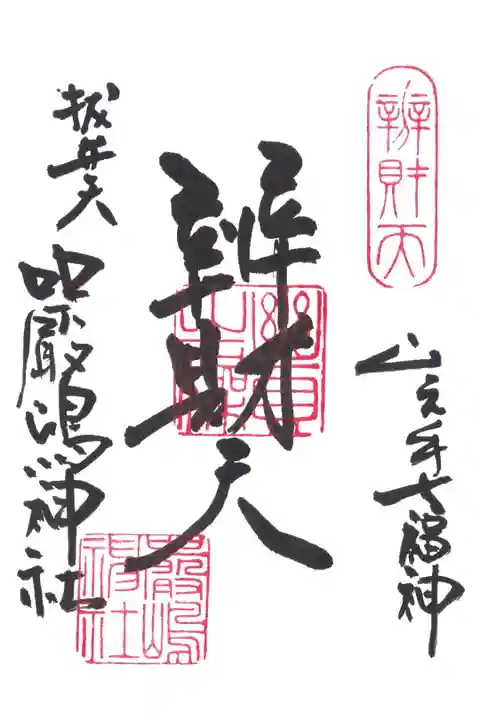 辨財天
山之手七福神
辨財天
抜弁天
嚴嶋神社
嚴嶋
神社